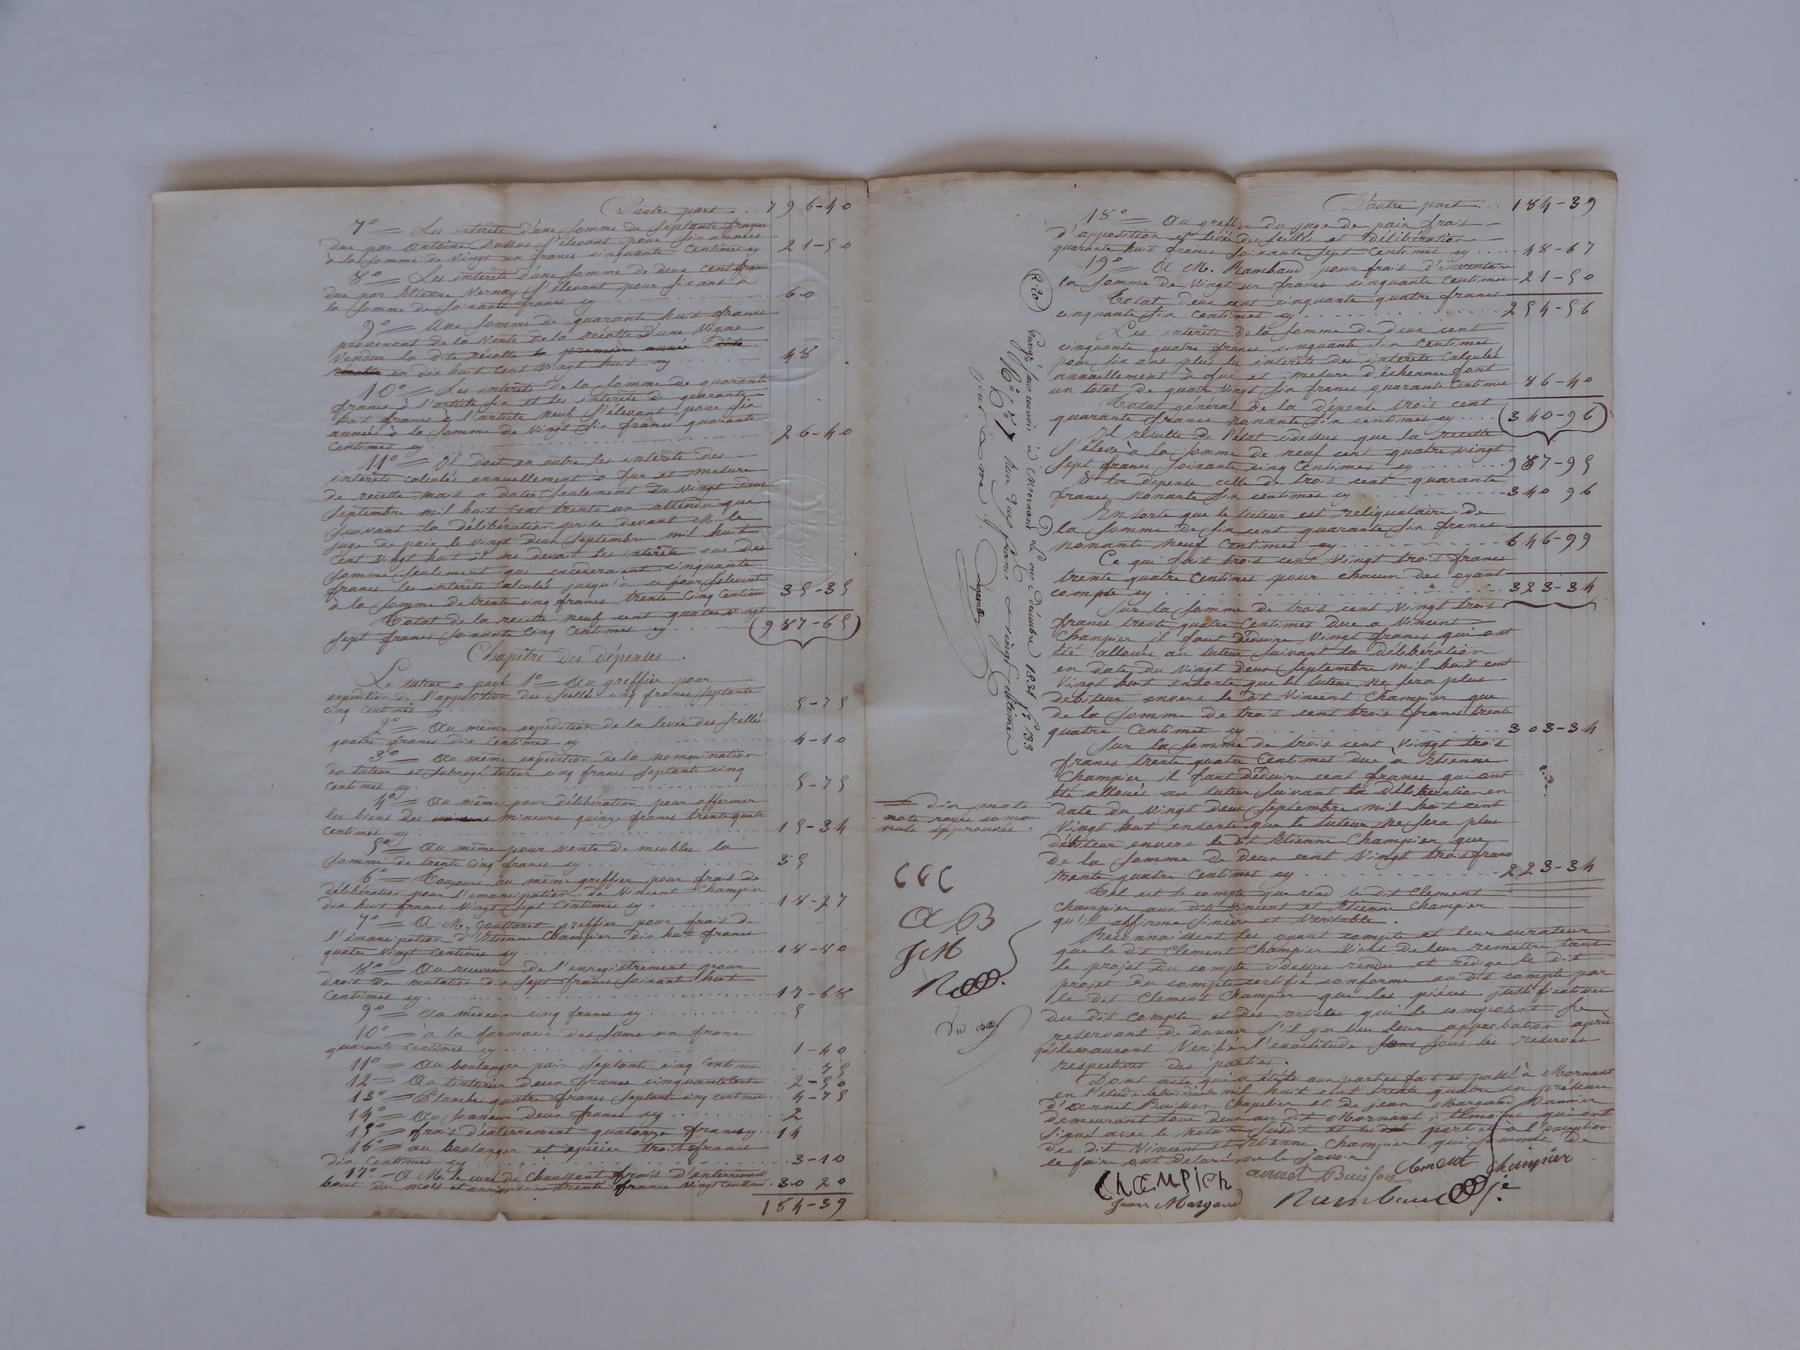 D'autre part . . . 796-40
7° = Les intérêts d'une somme de septante francs
due par Antoine Dussus s'élevant pour six années
à la somme de vingt un francs cinquante centimes cy 21-50
8° = Les intérêts d'une somme de deux cent francs
due par Etienne Vernay s'élevant pour six ans à
la somme de soixante francs cy . . . 60
9° = Une somme de quarante huit francs
provenant de la vente de la récolte d'une vigne
vendue la dite récolte
en dix huit cent vingt huit cy . . . 48
10° = Les intérêts de la somme de quarante
francs à l'article six et les intérêts de quarante
huit francs à l'article neuf s'élevant pour six
années à la somme de vingt six francs quarante
centimes cy . . . 26-40
11° = Il doit en outre les intérêts des
intérêts calculés annuellement à fur et mesure
de recette mais a dater seulement du vingt deux
septembre mil huit cent trente un attendu que
suivant la délibération prise devant M. le
juge de paix le vingt deux septembre mil huit
cent vingt huit il ne devait les intérêts que des
sommes seulement qui excéderaient cinquante
francs les intérêts calculés jusqu'à ce jour s'élevent
à la somme de trente cinq francs trente cinq centimes 35-35
Total de la recette neuf cent quatre vingt
sept francs soixante cinq centimes cy . . . 987-65
Chapitre des dépenses.
Le tuteur a payé 1° = Au greffier pour
expédition de l'apposition des scellés cinq francs septante
cinq centimes cy . . . 5-75
2° = Au même expédition de la levée des scellés
quatre francs dix centimes cy . . . 4-10
3° = Au même expédition de la nommination
du tuteur et subrogé tuteur cinq francs septante cinq
centimes cy . . . 5-75
4° = Au même pour délibération pour affermer
les biens des mineurs quinze francs trente quatre
centimes cy . . . 15-34
5° = Au même pour vente de meubles la
somme de trente cinq francs cy . . . 35
6° = Toujours au même greffier pour frais de
délibération pour l'émancipation de Vincent Champier
dix huit francs vingt sept centimes cy . . . 18-27
7° = A M. greffier pour frais de
l'émancipation d'Etienne Champier dix huit francs
quatre vingt centimes cy . . . 18-80
8° = Au receveur de l'enregistrement pour
droit de mutation dix sept francs soixant huit
centimes cy . . . 17-68
9° = Au médecin cinq francs cy . . . 5
10° = à la farmacie des sœurs un franc
quarante centimes cy . . . 1-40
11° = Au boulanger pain septante cinq centimes 75
12 = Au teinturier deux francs cinquante cent. 2-50
13° = Blanche quatre francs septante cinq centimes 4-75
14° = Au sonneur deux francs cy . . . 2
15° = frais d'enterrement quatorze francs cy 14
16° = au boulanger et épicier trois francs
dix centimes cy . . . 3-10
17° = A M. le curé de Chaussant frais d'enterrement
bout du mois et anniversaire trente francs vingt centimes 30 20
184-39
D'autre part . . . 184-39
18° = Au greffier du juge de paix frais
d'apposition et levée des scellés et délibération
quarante huit francs soixante sept centimes cy . . . 48-67
19° = A M. Rambaud pour frais d'inventaire
la somme de vingt un francs cinquante centimes 21-50
Total deux cent cinquante quatre francs
cinquante six centimes cy . . . 254-56
Les intérêts de la somme de deux cent
cinquante quatre francs cinquante six centimes
pour six ans plus les intérêts des intérêts calculés
annuellement à fur et mesure d'échéance font
un total de quatre vingt six francs quarante centimes 86-40
Total général de la dépense trois cent
quarante francs nonante six centimes cy . . . 340-96
Il résulte de l'état cidessus que la recette
s'élève à la somme de neuf cent quatre vingt
sept francs soixante cinq centimes cy . . . 987-95
Et la dépense celle de trois cent quarante
francs nonante six centimes cy . . . 340 96
En sorte que le tuteur est reliquataire de
la somme de six cent quarante six francs
nonante neuf centimes cy . . . 646-99
Ce qui fait trois cent vingt trois francs
trente quatre centimes pour chacun des oyant
compte cy . . . 323-34
Sur la somme de trois cent vingt trois
francs trente quatre centimes due a Vincent
Champier il faut déduire vingt francs qui ont
été alloués au tuteur suivant la délibération
en date du vingt deux septembre mil huit cent
vingt huit ensorte que le tuteur ne sera plus
débiteur envers le dit Vincent Champier que
de la somme de trois cent trois francs trente
quatre centimes cy . . . 303-34
Sur la somme de trois cent vingt trois
francs trente quatre centimes due a Etienne
Champier il faut déduire cent francs qui ont
été alloués au tuteur suivant la délibération en
date du vingt deux septembre mil huit cent
vingt huit ensorte que le tuteur ne sera plus
débiteur envers le dit Etienne Champier que
de la somme de deux cent vingt trois francs
trente quatre centimes cy . . . 223-34
Tel est le compte que rend le dit Clement
Champier aux dits Vincent et Etienne Champier
qu'il affirme sincère et véritable.
Reconnaissent les oyant compte et leur curateur
que le dit Clement Champier vient de leur remettre tant
le projet du compte cidessus rendu et rédigé le dit
projet du compte certifié conforme au dit compte par
le dit Clement Champier que les pièces justificatives
du dit compte et des articles qui le composent se
reservant de donner s'il y a lieu leur approbation après
qu'ils auront verifié l'exactitude sous les reserves
respectives des parties.
Dont acte qui a été lu aux parties fait et passé à Mornant
en l'étude le mil huit cent trente quatre en présence
d'Annet Buisson Chapelier et de Jean Margaud
demeurant tous deux au dit Mornant témoins qui ont
signé avec le notaire susdit et les parties à l'exception
des dits Vincent et Etienne Champier qui de
le faire ont déclaré ne le savoir
annet Buisson Clement Champier
CHAMPIER
Jean Margaud Rambaud
R 20
Enregistré à Mornant Le onze décembre 1834 f° 133
R° Reçu deux francs vingt centimes
= dix mots
mots rayés comme
nuls approuvés.
CCC
A B
J M